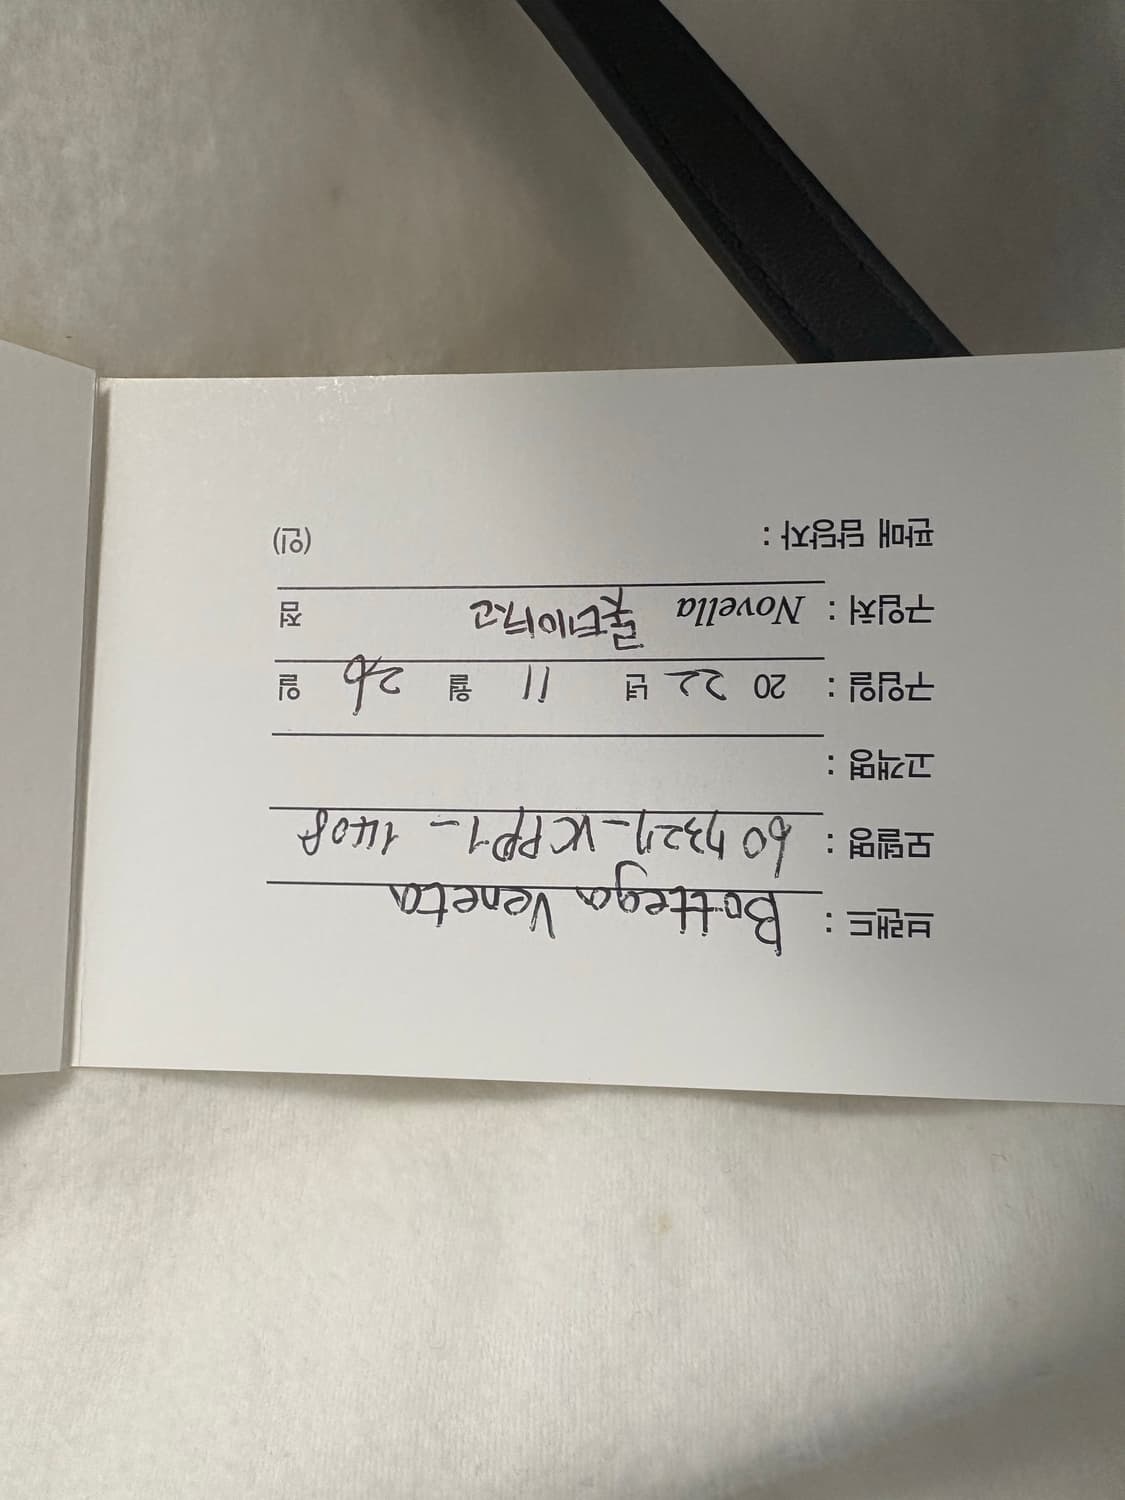 브랜드 : Bottega Veneta
모델명 :
고객명 :
구입일 : 20 22 년 11 월 26 일
구입처 : Novella 롯데아쿠고 점
판매 담당자 : (인)